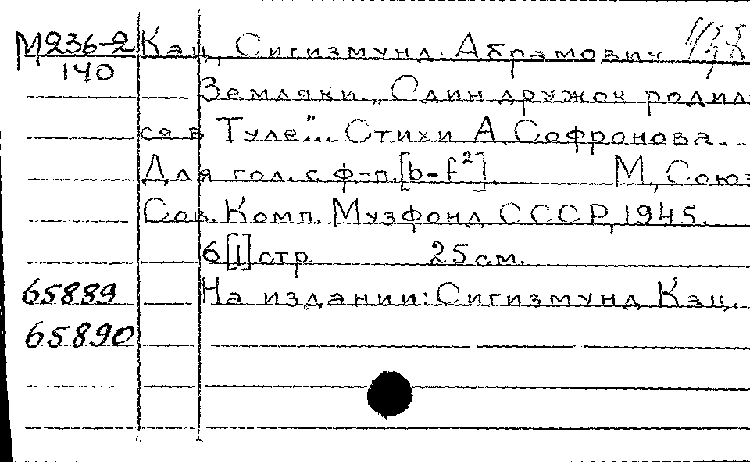 М236-2 Кац, Сигизмунд Абрамович
140
Земляки. „Один дружок родил
ся в Туле"... Стихи А. Софронова.
Для гол. с ф-п. [b-f²]. М., Союз
Сов. Комп. Музфонд СССР, 1945.
6 [1] стр. 25 см.
65889 На издании: Сигизмунд Кац.
65890